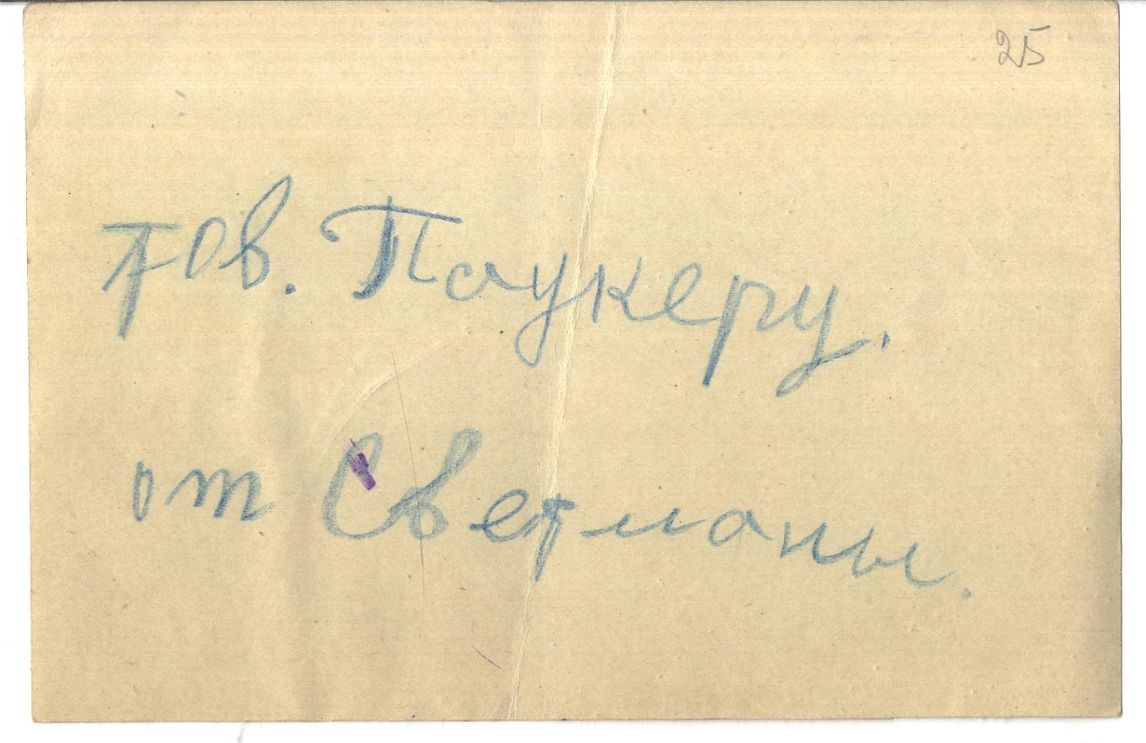 25
тов. Паукеру.
от Светланы.